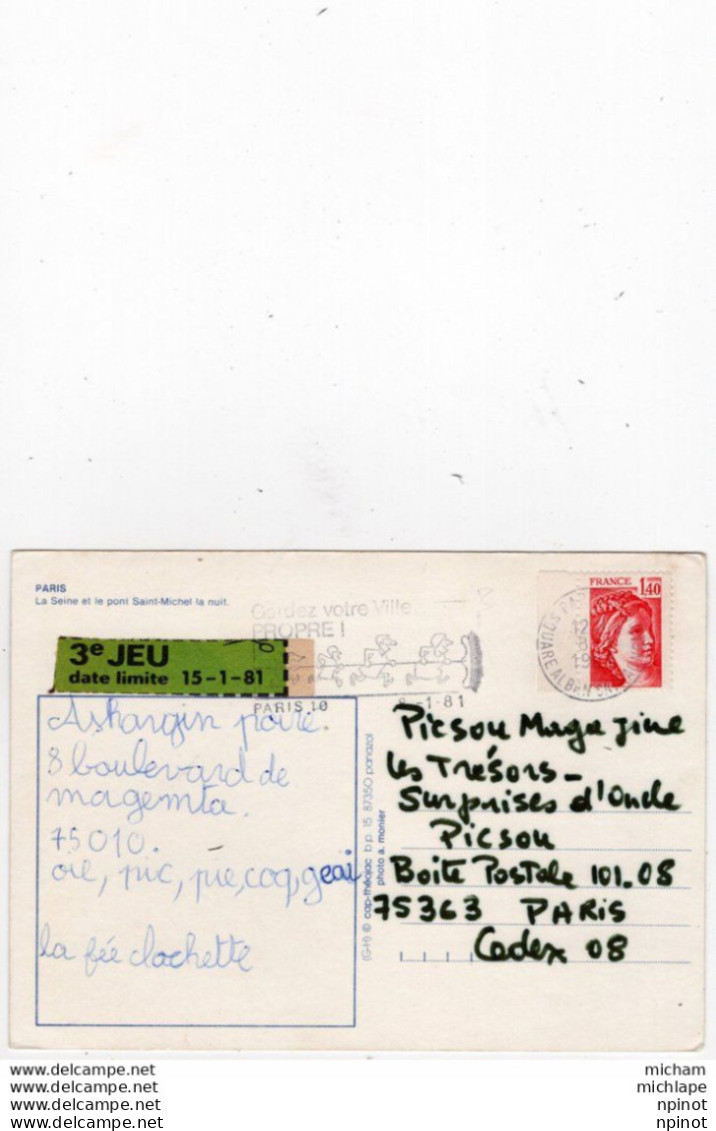 PARIS
La Seine et le pont Saint-Michel la nuit.
Gardez votre Ville
PROPRE !
PARIS 10
8-1-81
FRANCE
1,40
3e JEU
date limite 15-1-81
8 boulevard de
magemta.
75010.
oie, pic, pie, coq, geai
la fée clochette
(G-H) © cap-théojac b.p. 15 87350 panazol
photo a. monier
Picsou Magazine
Les Trésors-
Surprises d'Oncle
Picsou
Boite Postale 101.08
75363 PARIS
Cedex 08
www.delcampe.net
www.delcampe.net
www.delcampe.net
www.delcampe.net
micham
michlape
npinot
npinot